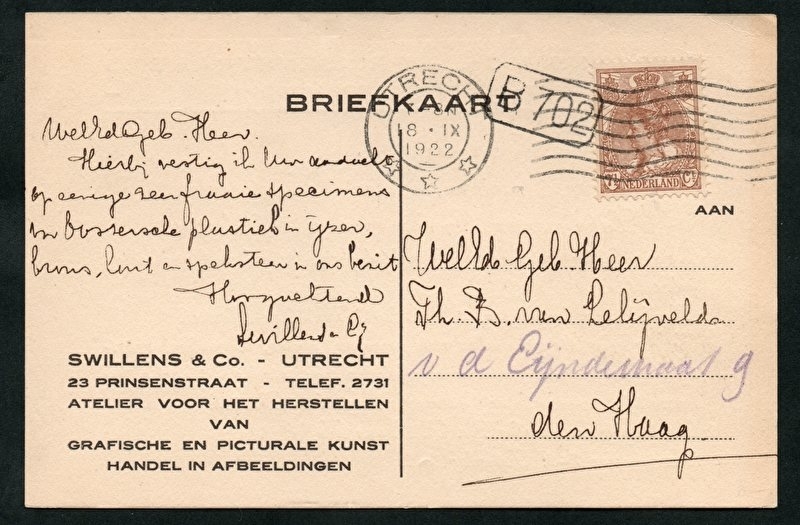 BRIEFKAART
UTRECHT
18 · IX
1922
B 702
NEDERLAND
AAN
WelEdGeb. Heer.
Hierbij vestig ik Uw aandacht
op eenige zeer fraaie specimens
in ijzer,
brons, hout en speksteen in ons bezit
Hoogachtend
Swillens & Co
SWILLENS & Co. - UTRECHT
23 PRINSENSTRAAT - TELEF. 2731
ATELIER VOOR HET HERSTELLEN
VAN
GRAFISCHE EN PICTURALE KUNST
HANDEL IN AFBEELDINGEN
WelEd. Geb. Heer
Th. B. van Lelyveld
v d Eijndestraat 9
den Haag.